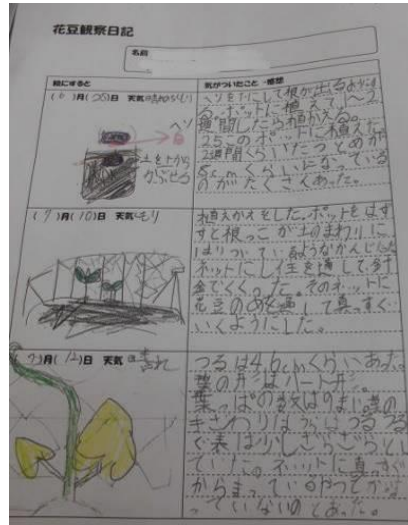 花豆観察日記
名前
絵にすると
気がついたこと・感想
(6)月(26)日 天気 晴れのちくもり
ヘソ
土を上から
かぶせる
ヘソを下にして根が出るように
ポットに植えて1~2
週間したら植かえる。
25このポットに植えた
2週間くらいたつとめが
5cmくらいになっている
のがたくさんあった。
(7)月(10)日 天気 くもり
植えかえをした。ポットをはず
すと根っこが土のまわりに
はりついているようなかんじした
ネットにし柱を通して針
金でくくった。そのネットに
花豆のめを通して真っすぐ
いくようにした。
(7)月(12)日 天気 晴れ
つるは46cmくらいあった
葉の形はハート形。
葉っぱの数はりまい。葉の
さわりはうらはつるつる
で表は少しざらざらとし
ていた。ネットに真っすぐ
からまっているやつとから
っていないのとあった。